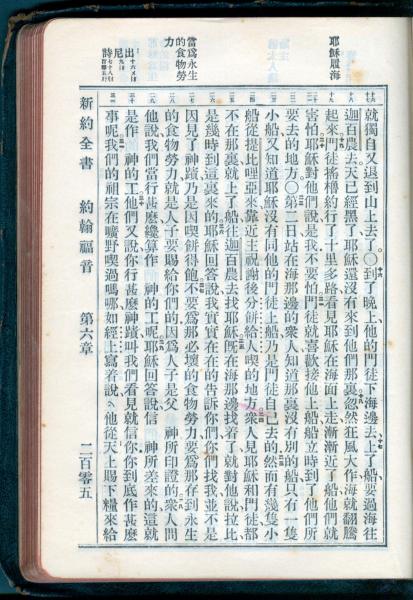 耶穌履海
當爲永生
的食物勞
力
出十六〇四
尼九〇
詩七十八〇
就獨自又退到山上去了〇到了晚上他的門徒下海邊去上了船要過海往
迦百農去天已經黑了耶穌還沒有來到他們那裏忽然狂風大作海就翻騰
起來門徒搖櫓約行了十里多路看見耶穌在海面上走漸漸近了船他們就
害怕耶穌對他們說是我不要怕門徒就喜歡接他上船船立時到了他們所
要去的地方〇第二日站在海那邊的衆人知道那裏沒有別的船只有一隻
小船又知道耶穌沒有同他的門徒上船乃是門徒自己去的然而有幾隻小
船從提比哩亞來靠近主祝謝後分餅給人喫的地方衆人見耶穌和門徒都
不在那裏就上了船往迦百農去找耶穌旣在海那邊找着了就對他說拉比
是幾時到這裏來的耶穌回答說我實實在在的告訴你們你們找我並不是
因見了神蹟乃是因喫餅得飽不要爲那必壞的食物勞力要爲那存到永生
的食物勞力就是人子要賜給你們的因爲人子是父 神所印證的衆人問
他說我們當行甚麽纔算作 神的工呢耶穌回答說信 神所差來的這就
是作 神的工他們又說你行甚麽神蹟叫我們看見就信你你到底作甚麽
事呢我們的祖宗在曠野喫過嗎哪如經上寫着說他從天上賜下糧來給
新約全書 約翰福音 第六章 二百零五